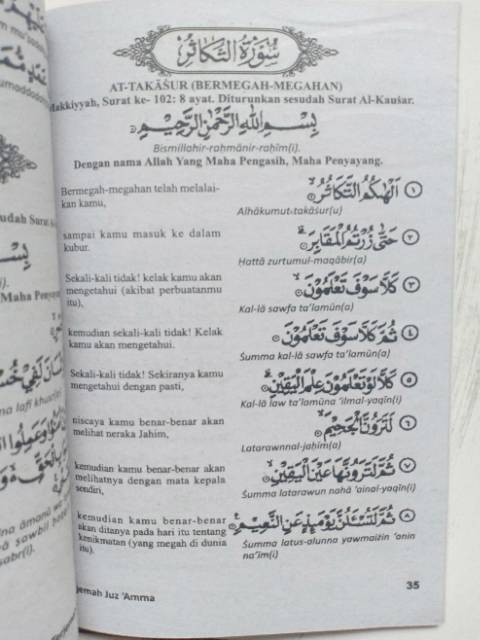 سُورَةُ التَّكَاثُرِ
AT-TAKĀŚUR (BERMEGAH-MEGAHAN)
Makkiyyah, Surat ke- 102: 8 ayat. Diturunkan sesudah Surat Al-Kauśar.
بِسْمِ اللَّهِ الرَّحْمَٰنِ الرَّحِيمِ
Bismillahir-rahmānir-raḥīm(i).
Dengan nama Allah Yang Maha Pengasih, Maha Penyayang.
Bermegah-megahan telah melalai-
kan kamu,
١ اَلْهٰىكُمُ التَّكَاثُرُۙ
Alhākumut-takāśur(u)
sampai kamu masuk ke dalam
kubur.
٢ حَتّٰى زُرْتُمُ الْمَقَابِرَۗ
Ḥattā zurtumul-maqābir(a)
Sekali-kali tidak! kelak kamu akan
mengetahui (akibat perbuatanmu
itu),
٣ كَلَّا سَوْفَ تَعْلَمُوْنَۙ
Kal-lā sawfa ta'lamūn(a)
kemudian sekali-kali tidak! Kelak
kamu akan mengetahui.
٤ ثُمَّ كَلَّا سَوْفَ تَعْلَمُوْنَ
Śumma kal-lā sawfa ta'lamūn(a)
Sekali-kali tidak! Sekiranya kamu
mengetahui dengan pasti,
٥ كَلَّا لَوْ تَعْلَمُوْنَ عِلْمَ الْيَقِيْنِۗ
Kal-lā law ta'lamūna 'ilmal-yaqīn(i)
niscaya kamu benar-benar akan
melihat neraka Jahim,
٦ لَتَرَوُنَّ الْجَحِيْمَۙ
Latarawnnal-jaḥim(a)
kemudian kamu benar-benar akan
melihatnya dengan mata kepala
sendiri,
٧ ثُمَّ لَتَرَوُنَّهَا عَيْنَ الْيَقِيْنِۙ
Śumma latarawun nahā 'ainal-yaqīn(i)
kemudian kamu benar-benar
akan ditanya pada hari itu tentang
kenikmatan (yang megah di dunia
itu).
٨ ثُمَّ لَتُسْـَٔلُنَّ يَوْمَىِٕذٍ عَنِ النَّعِيْمِ
Śumma latus-alunna yawmaiżin 'anin
na'īm(i)
35
Juz 'Amma